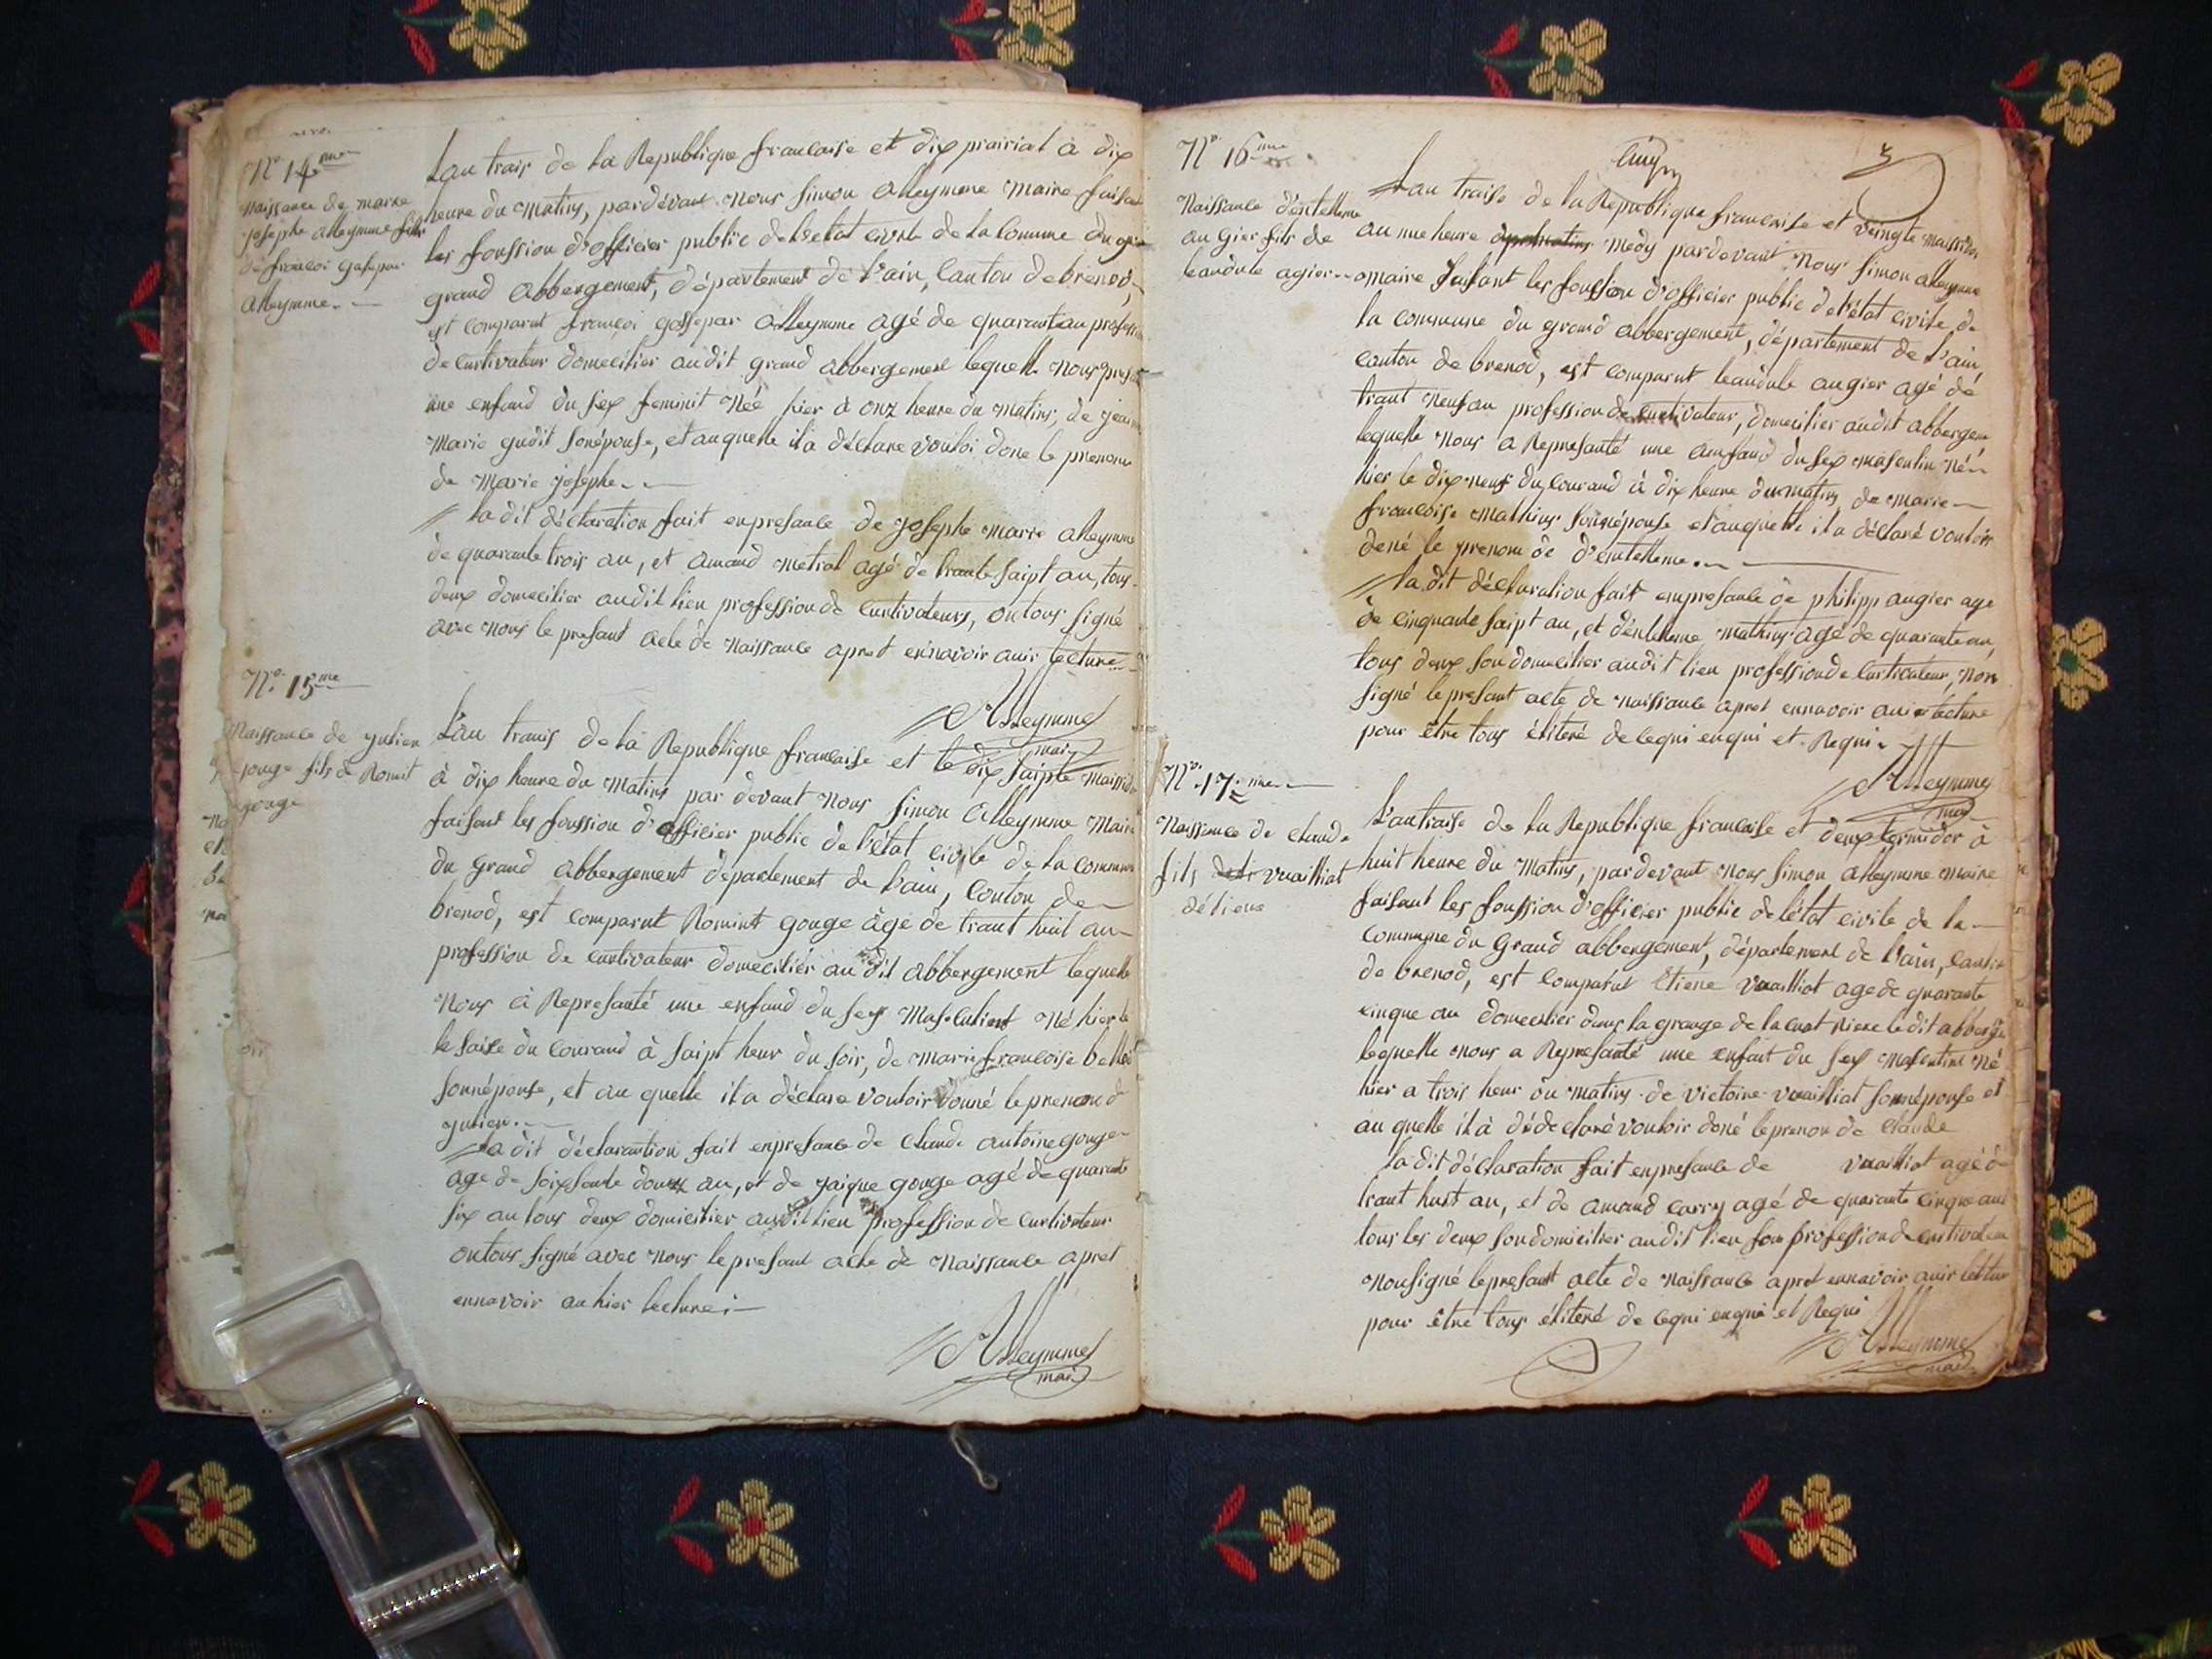 N.° 14.me
Naissance de marie
josephe alleymme fille
de françoi gaspar
alleymme.
L'an trais de la Republique francaise et dix prairial à dix
heure du matins, pardevant nous simon alleymme maire faisant
les fonssion d'officier public de l'etat civile de la Comune du
grand abbergement, département de l'ain, Canton de brenod,
est comparut françoi gassepar alleymme agé de quarante an profession
de Curtivateur domecilier audit grand abbergement lequelle nous
une enfand du sex feminit Née hier à onz heure du matins, de
Marie gudit sonépouse, et auquelle il a déclare vouloi done le prenom
de Marie josephe.
la dit déclaration fait enpresance de josephe marie alleymme
de quarante trois an, et amand metral agé de trante saipt an, tous
deux domecilier audit lien profession de Curtivateurs, ontous signé
avec nous le presant acte de naissance apret ennavoir auir lecture
Alleymme
mair
N.° 15me
Naissance de julien
gouge fils de Romint
gouge
L'an trais de la Republique francaise et le dix saipte
à dix heure du matins par devant nous simon alleymme maire
faisant les fonssion d'officier public de l'état civile de la commune
du grand abbergement département de l'ain, Conton de
brenod, est comparut Romint gouge àgé de trant huit an
profession de curtivateur domecilier au dit abbergement lequelle
nous à Represanté une enfand du sex masculient né hier le
le saise du courand à saipt heur du soir, de marie francoise
sonnépouse, et au quelle il a déclare vouloir donné le prenom d
julien.
la dit déclaration fait enpresance de claude antoine gouge
age de soixsante douze an, et de jaique gouge agé de quarante
six an tous deux domicilier audit lien profession de curtivateur
ontous signé avec nous le presant acte de naissance apret
ennavoir auhier lecture
Alleymme
mair
N.° 16me
Naissance d'entelleme
augier fils de
leandule agier
L'an traise de la Republique francaise et veingte
au une heure medy pardevant nous simon alleymme
maire faisant les fonssion d'officier public de l'état civile de
la commune du grand abbergement, département de l'ain,
canton de brenod, est comparut leandule augier agé de
trant neuf an profession de curtivateur, domecilier audit abbergem
lequelle nous a Represanté une anfand du sex masculin né
hier le dix neuf du courand à dix heure du matins de marie
francoise mathins sonnépouse et auquelle il a déclaré vouloir
doné le prenom de d'entelleme.
la dit déclaration fait enpresance de philipp augier age
de cinquante saipt an, et d'entelleme mathins agé de quarante an,
tous deux son domecilier audit lieu profession de curtivateur, non
signé le presant acte de naissance apret ennavoir auir lecture
pour étre tous élitere de lequi enqui et Requi.
Alleymme
mair
N.° 17.me
Naissance de claude
fils vuailliat
détiene
L'antraise de la Republique francaise et deux termidor à
huit heure du matins, pardevant nous simon alleymme maire
faisant les fonssion d'officier public de l'état civile de la
commune du Grand abbergement, département de l'ain, canton
de brenod, est comparut étiene vuailliat age de quarante
cinque an domecilier dans la grange de la ledit
lequelle nous a Represanté une enfant du sex masculint né
hier a trois heur du matins de victoire vuailliat sonnépouse et
au quelle il à dédeclaré vouloir doné le prenom de claude
la dit déclaration fait enpresance de vuailliat agé de
trant huit an, et de amand carry agé de quarante cinque an
tous les deux son domicilier audit lieu son profession de curtivateur
nonsigné le presant acte de naissance apret ennavoir auir lectur
pour étre tous élitere de lequi enqui et Requi
Alleymme
mair